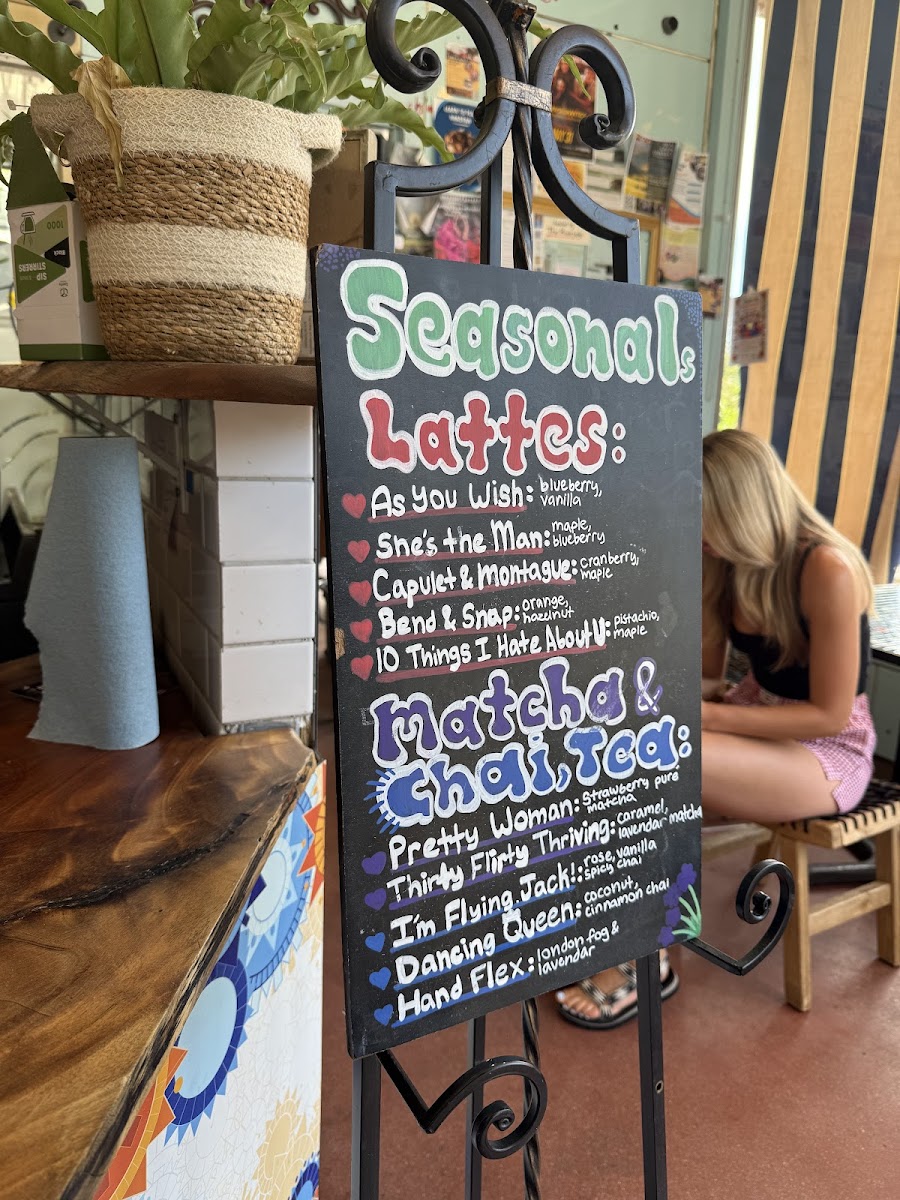 Seasonals
Lattes:
As You Wish: blueberry,
vanilla
She's the Man: maple,
blueberry
Capulet & Montague: cranberry,
maple
Bend & Snap: orange,
hazelnut
10 Things I Hate About U: pistachio,
maple
Matcha &
Chai, Tea:
Pretty Woman: Strawberry puré
matcha
Thirty Flirty Thriving: caramel,
lavendar matcha
I'm Flying Jack!: rose, vanilla
spicy chai
Dancing Queen: coconut,
cinnamon chai
Hand Flex: london fog &
lavendar
1000
SIP & STIRRERS
Black